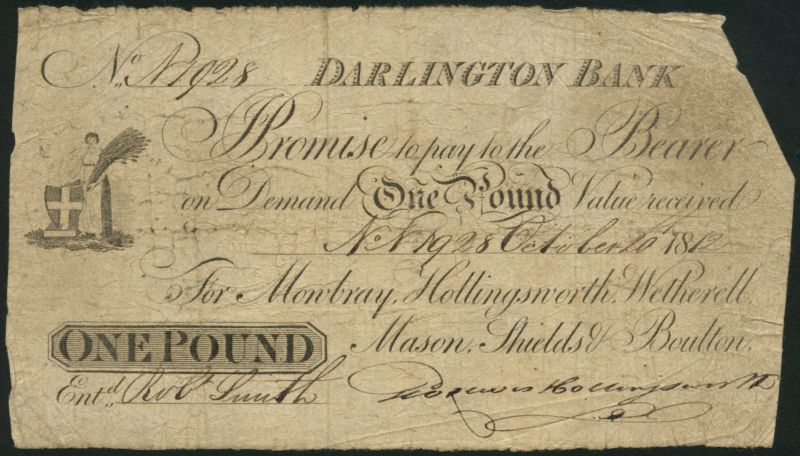 No. N1928 DARLINGTON BANK
I Promise to pay to the Bearer
on Demand One Pound Value received
No. N1928 October 20th 1812
For Mowbray, Hollingsworth, Wetherell,
Mason, Shields & Boulton.
ONE POUND
Entd. Robt Smith Hollingsworth